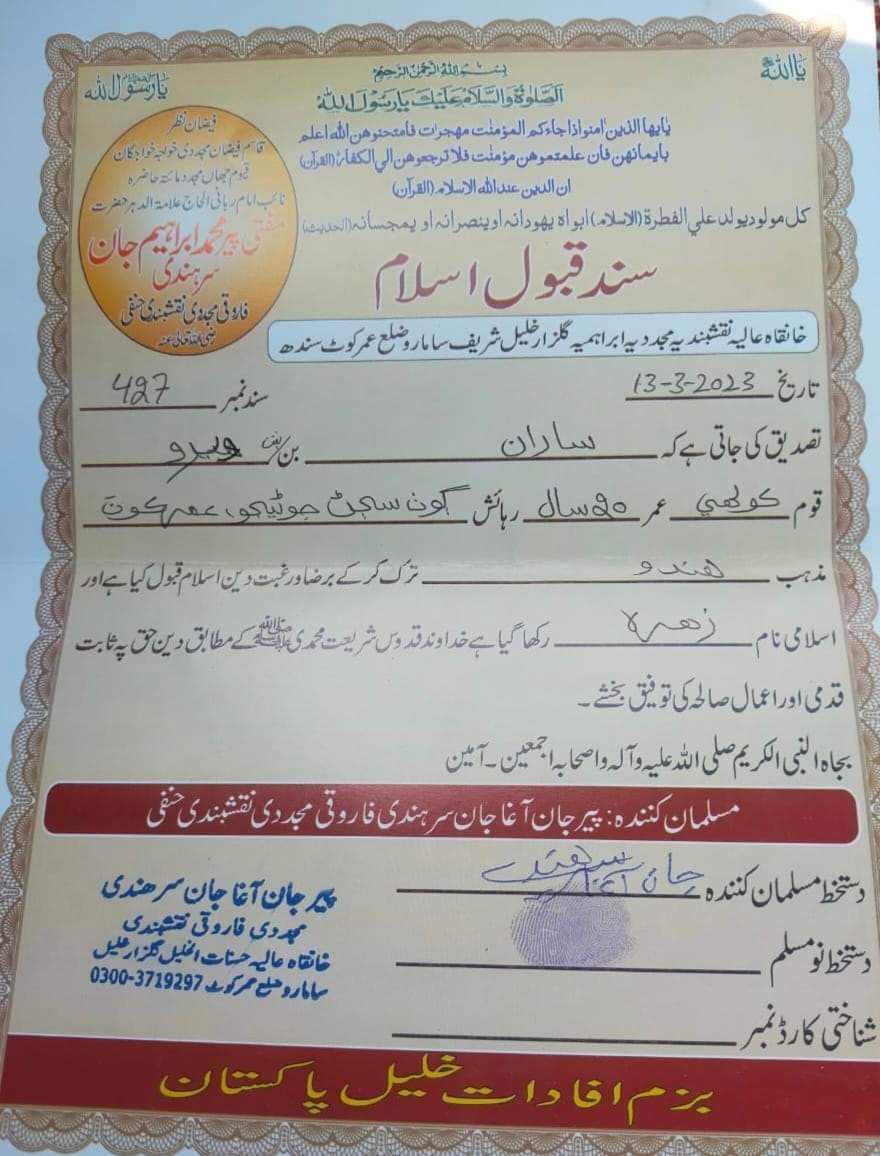 بسم الله الرحمن الرحيم
یا اللہ
یا رسول اللہ
الصلوٰۃ والسلام علیک یا رسول اللہ
یایها الذین امنوا اذا جاءکم المؤمنت مهجرات فامتحنوهن الله اعلم
بایمانهن فان علمتموهن مؤمنت فلا ترجعوهن الی الکفار (القرآن)
ان الدین عند الله الاسلام (القرآن)
کل مولود یولد علی الفطرة (الاسلام) ابواه یهودانه او ینصرانه او یمجسانه (الحدیث)
فیضان نظر
قاسم فیضان مجددی خواجہ خواجگان
قیوم جہاں مجدد مائتہ حاضرہ
نائب امام ربانی الحاج علامۃ الدہر حضرت
مفتی پیر محمد ابراہیم جان
سرہندی
فاروقی مجددی نقشبندی حنفی
رضی اللہ تعالیٰ عنہ
سند قبول اسلام
خانقاہ عالیہ نقشبندیہ مجددیہ ابراہمیہ گلزار خلیل شریف سامارو ضلع عمر کوٹ سندھ
تاریخ 13-3-2023 سند نمبر 427
تصدیق کی جاتی ہے کہ ساران بن/بنت ویرو
قوم کولھي عمر 20 سال رہائش ڳوٺ سڄڻ جوڻيجو، عمرکوٽ
مذہب هندو ترک کر کے برضا ورغبت دین اسلام قبول کیا ہے اور
اسلامی نام زهره رکھا گیا ہے خداوند قدوس شریعت محمدی ﷺ کے مطابق دین حق پہ ثابت
قدمی اور اعمال صالحہ کی توفیق بخشے ۔
بجاہ النبی الکریم صلی اللہ علیہ وآلہ واصحابہ اجمعین ۔ آمین
مسلمان کنندہ : پیر جان آغا جان سرہندی فاروقی مجددی نقشبندی حنفی
دستخط مسلمان کنندہ جان آغا سرهندي
دستخط نو مسلم
شناختی کارڈ نمبر
پیر جان آغا جان سرهندی
مجددی فاروقی نقشبندی
خانقاہ عالیہ حسنات الخلیل گلزار خلیل
سامارو ضلع عمرکوٹ 0300-3719297
بزم افادات خلیل پاکستان